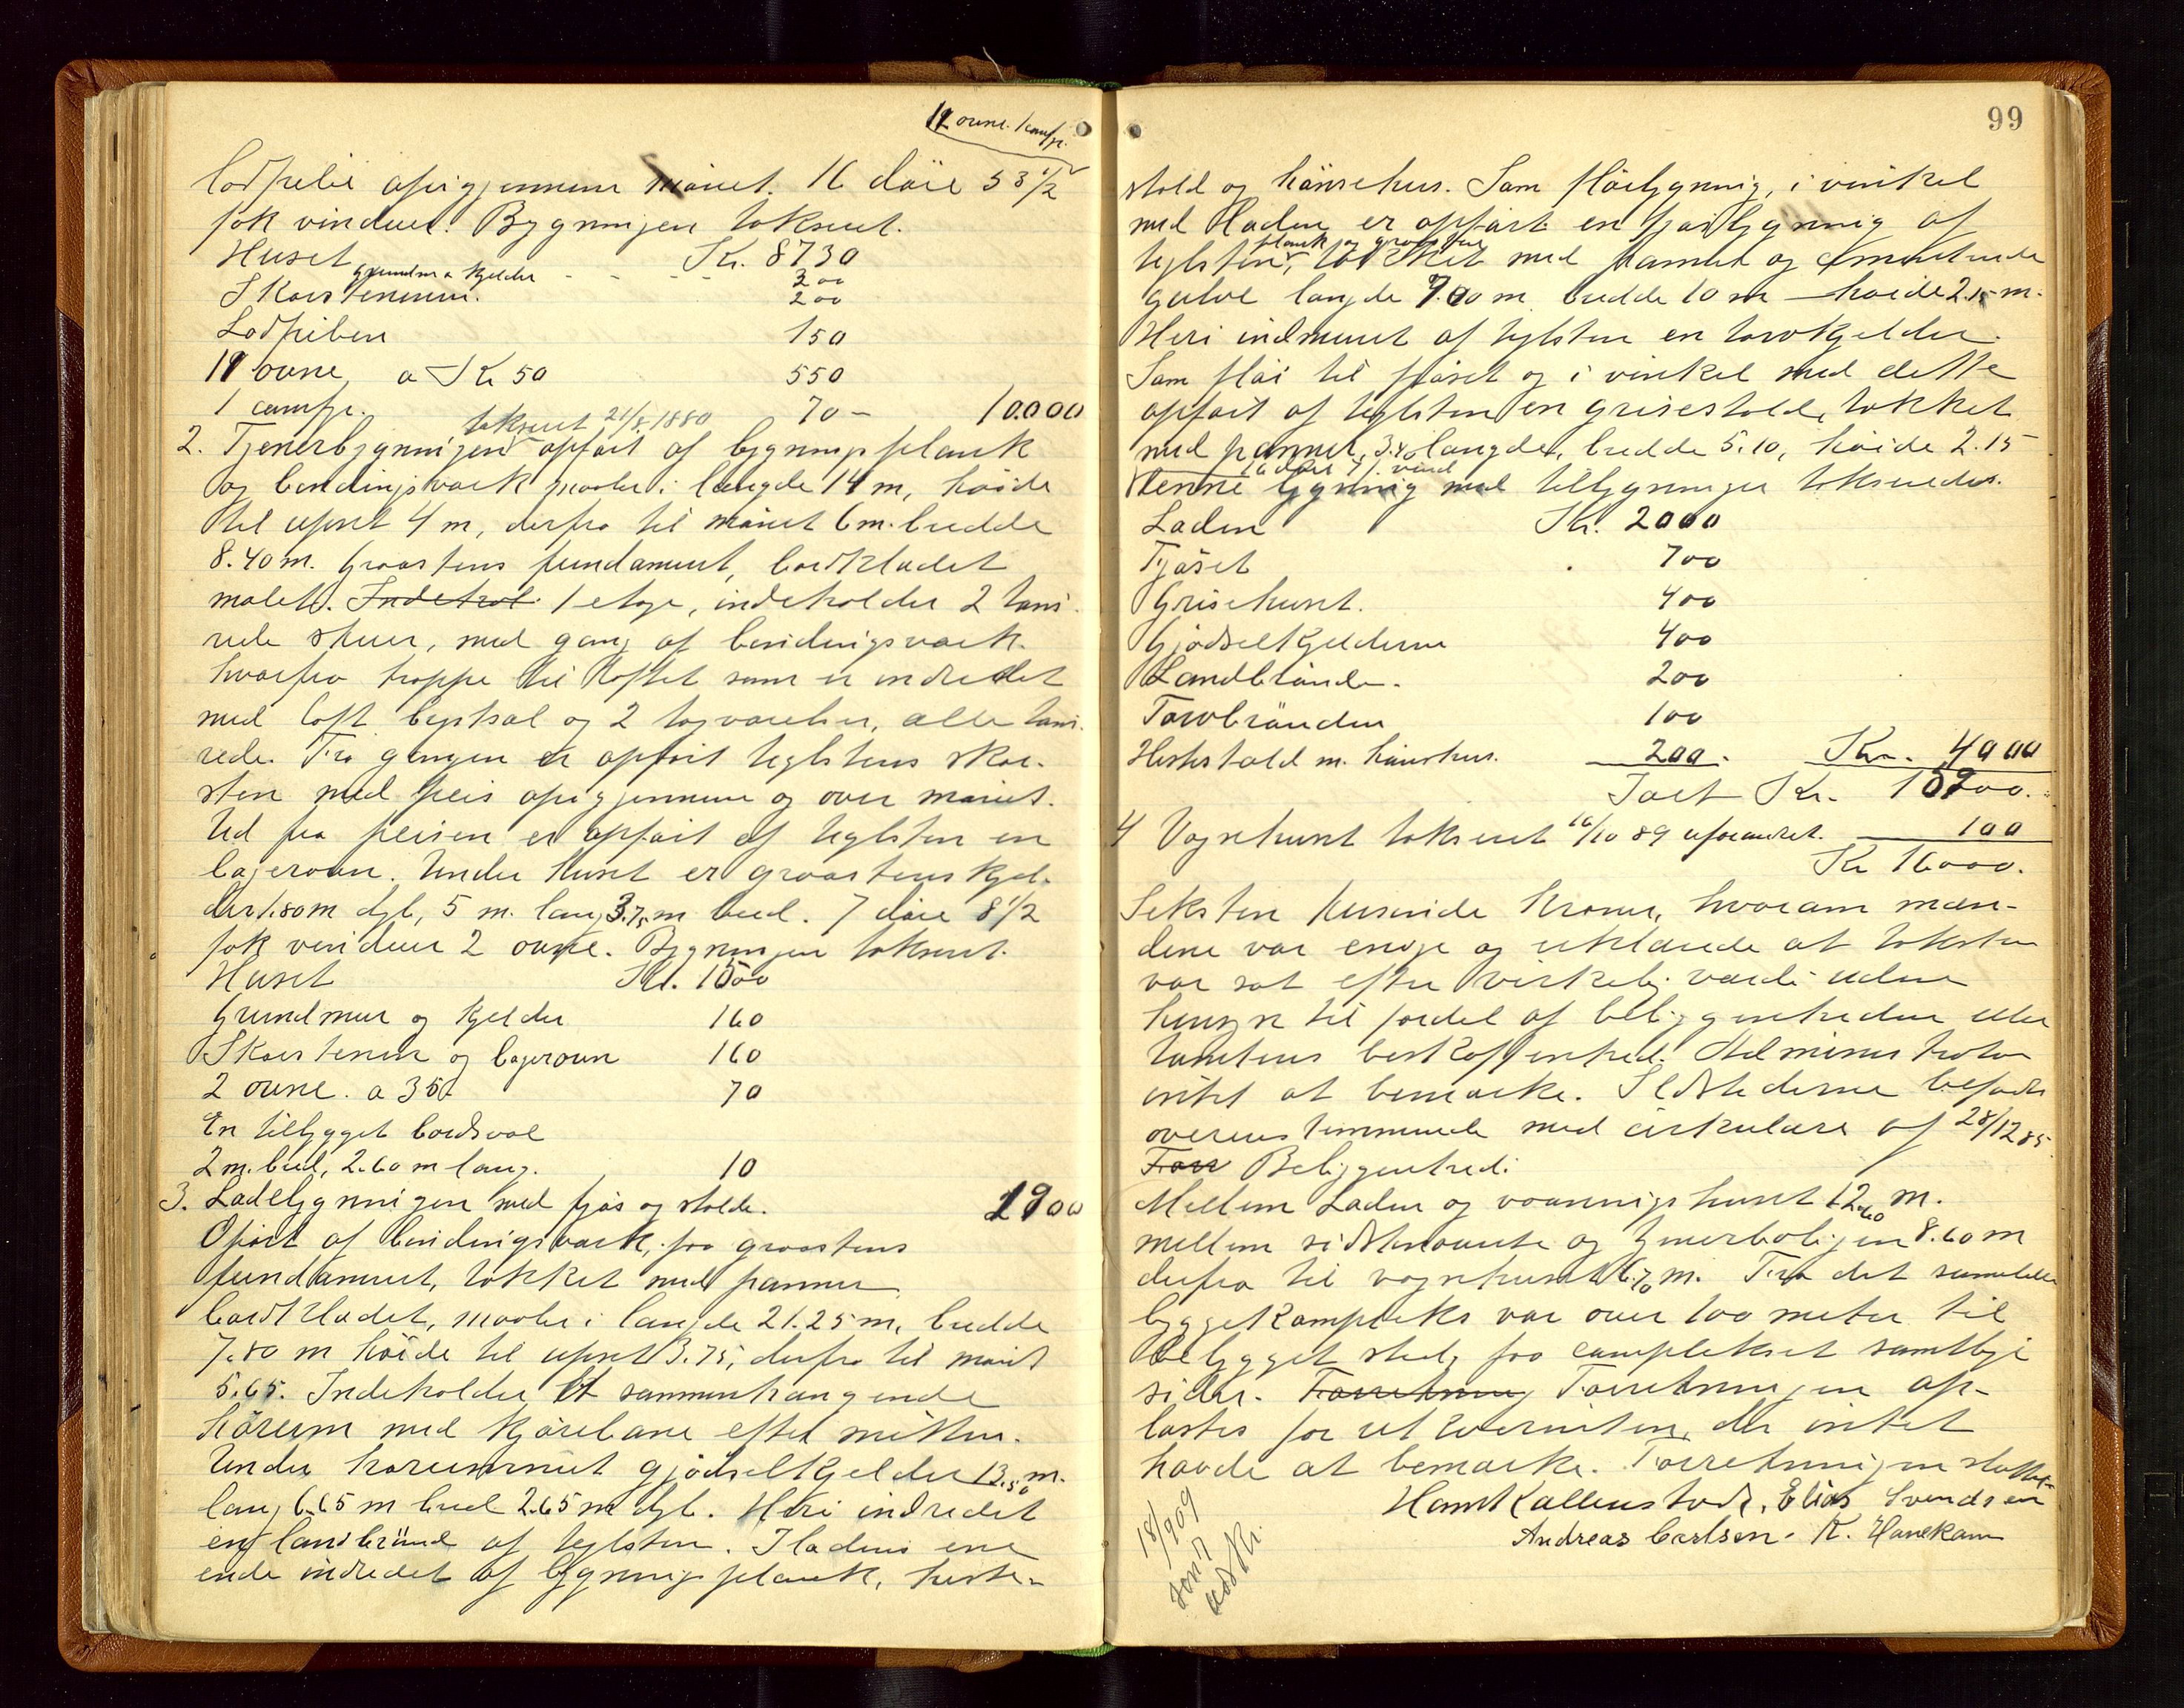 11 ovne. 1 comfr.
lodpibe op igjennem mönet. 16 döre 53 1/2
fak vinduer. Bygningen takseret.
Huset - - - Kr. 8730
grundm. & kjelder 300
Skorstenene. 200
Lodpiben 150
11 ovne a Kr 50 550
1 comfr. 70 - 10.000
takseret 21/8. 1880
2. Tjenerbygningen opfört af bygningsplank
og bindingsværk maaler i længde 14 m, höide
til upset 4 m, derfra til mönet 6 m. bredde
8.40 m. Graastens fundament, bordklædet
malet. Indehol 1 etage, indeholder 2 tapi-
rede stuer, med gang af bindingsværk.
hvorfra trappe til loftet som er indredet
med loft bagsal og 2 tagværelser, alle tapi-
rede. Fra gangen er opfört teglstens skor-
sten med peis op igjennem og over mönet.
Ud fra peisen er opfört af teglsten en
bagerovn. Under huset er graastenskjel-
der 1.80 m dyb, 5 m. lang 3.75 m bred. 7 döre 8 1/2
fak vinduer 2 ovne. Bygningen takseret.
Huset Kr. 1500
Grundmur og kjelder 160
Skorstenen og bagerovn 160
2 ovne. a 35 70
En tilbygget bordsval
2 m. bred, 2.60 m lang. 10
1900
3. Ladebygningen med fjös og stalde.
Opfört af bindingsværk, paa graastens
fundament, tækket med panner
bordklædet, maaler i længde 21.25 m, bredde
7.80 m höide til upset 3.75, derfra til mönet
5.65. Indeholder et sammenhængende
hörum med kjörebane efter midten.
Under hörummet gjödselkjelder 13.50 m.
lang 6.65 m bred 2.65 m dyb. Heri indredet
en landbrönd af teglsten. I ladens ene
ende indredet af bygningsplank, heste-
99
stald og hönsehus. Som flöibygning, i vinkel
med Laden er opfört en fjösbygning af
teglsten, plank og graasten tækket med panner og cementerede
gulve længde 7.00 m bredde 10 m - höide 2.15 m.
Heri indmuret af teglsten en torvkjelder.
Som flöi til fjöset og i vinkel med dette
opfört af teglsten en grisestald, tækket
med panner, 3.80 længde, bredde 5.10, höide 2.15
Denne bygning med tilbygninger takseredes.
Laden Kr. 2000
Fjöset 700
Grisehuset. 400
Gjödselkjelderne 400
Landbrönde. 200
Torvbrönden 100
Hestestald m. hönsehus. 200. Kr. 4000
Ialt Kr. 15900.
4 Vognhuset takseret 16/10 89 uforandret. 100
Kr 16000.
Seksten tusinde kroner, hvorom mæn-
dene var enige og erklærede at taksten
var sat efter virkelig værdi uden
hensyn til fordel af beliggenheden eller
tomtens beskaffenhed. Administrator
intet at bemærke. Ildstederne befandts
overensstemmende med cirkulære af 28/12 85.
Forr Beliggenhed:
Mellem Laden og vaaningshuset 12.60 m.
mellem sidstnævnte og tjenerboligen 8.60 m
derfra til vognhuset 6.70 m. Fra det samlede
byggekompleks var over 100 meter til
bebygget sted, fra complekset samtlige
sider. Forretning Forretningen op-
læstes for rekvirenten, der intet
havde at bemærke. Forretningen sluttet.
Elias Svendsen
Andreas Carlsen. K. Hanekam
18/9 09